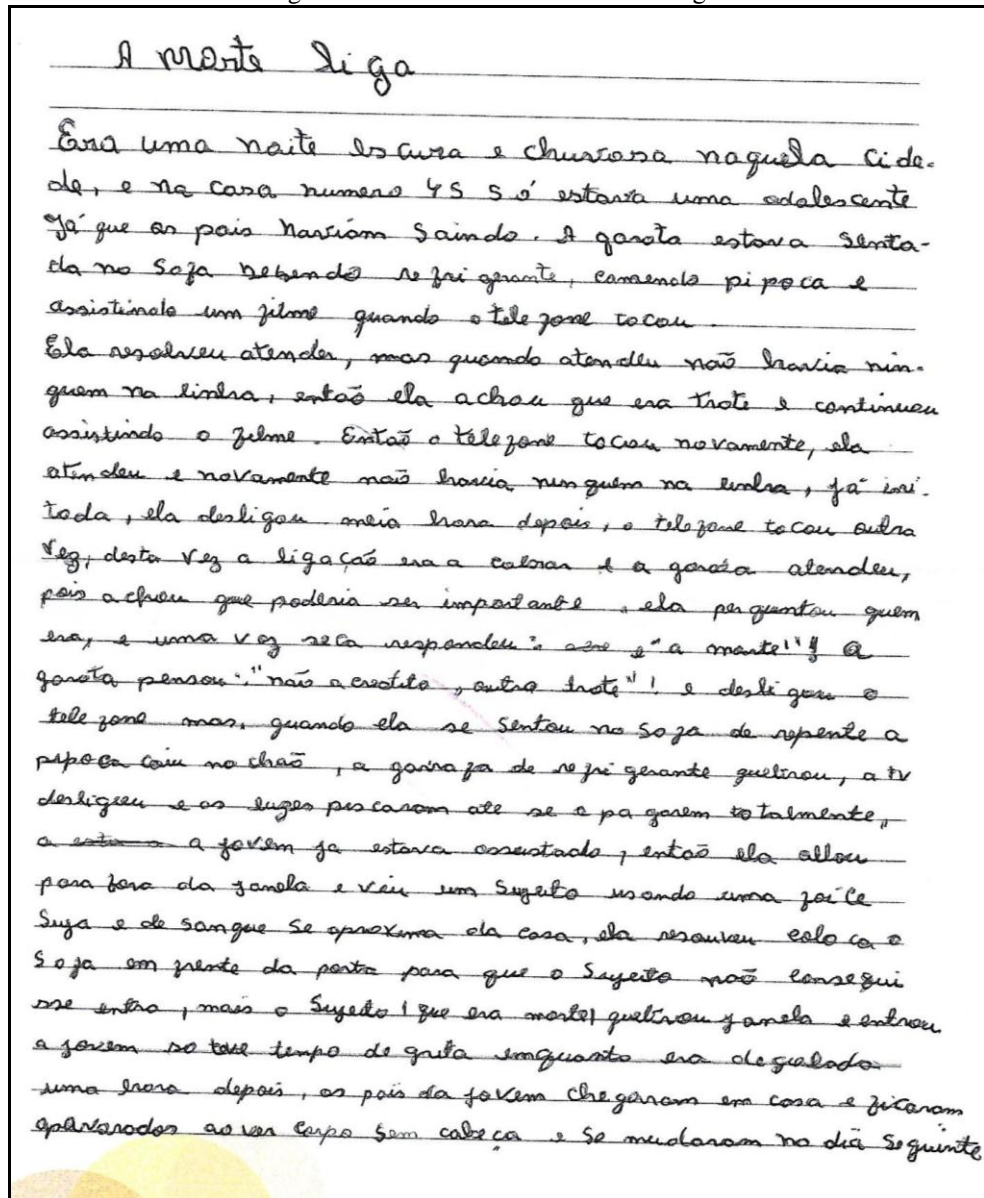 A morte liga
Era uma noite escura e chuvosa naquela cida-
de, e na casa numero 45 só estava uma adolescente
Já que os pais haviam saindo. A garota estava senta-
da no sofa bebendo refrigerante, comendo pipoca e
assistindo um filme quando o telefone tocou.
Ela resolveu atender, mas quando atendeu não havia nin-
guem na linha, então ela achou que era trote e continuou
assistindo o filme. Então o telefone tocou novamente, ela
atendeu e novamente não havia ninguém na linha, já iri-
tada, ela desligou meia hora depois, o telefone tocou outra
vez, desta vez a ligação era a cobrar e a garota atendeu,
pois achou que poderia ser importante, ela perguntou quem
era, e uma voz seca respondeu: "a morte!" A
garota pensou: "não acredito, outro trote"! e desligou o
telefone mas, quando ela se sentou no sofa de repente a
pipoca caiu no chão, a garrafa de refrigerante quebrou, a tv
desligou e as luzes piscaram ate se apagarem totalmente,
a a jovem ja estava assustada, então ela olhou
para fora da janela e viu um sujeito usando uma foice
Suja e de sangue se aproxima da casa, ela resouveu coloca o
sofa em frente da porta para que o Sujeito não consegui
sse entra, mais o Sujeito (que era morte) quebrou janela e entrou
a jovem so teve tempo de grita enquanto era degolada
uma hora depois, os pais da jovem chegaram em casa e ficaram
apavorados ao ver corpo sem cabeça e se mudaram no dia seguinte